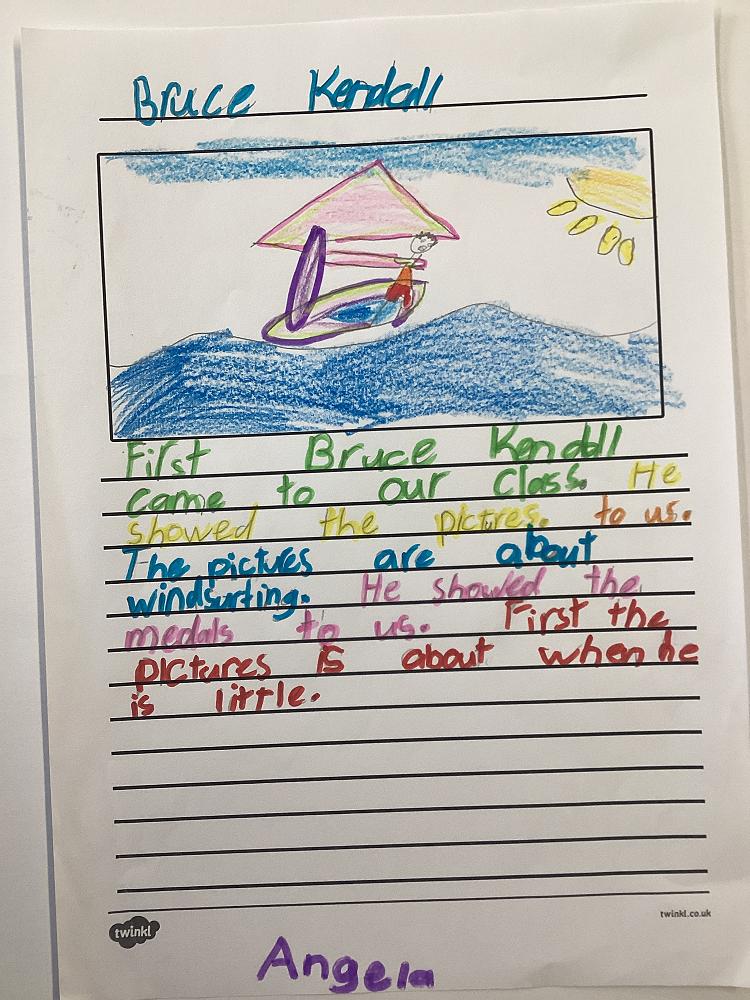 Bruce Kendall
First Bruce Kendall
came to our Class. He
showed the pictres. to us.
The pictures are about
windsurting.  He showed the
medals to us. First the
pictures is about when he
is little.
twinkl
twinkl.co.uk
Angela